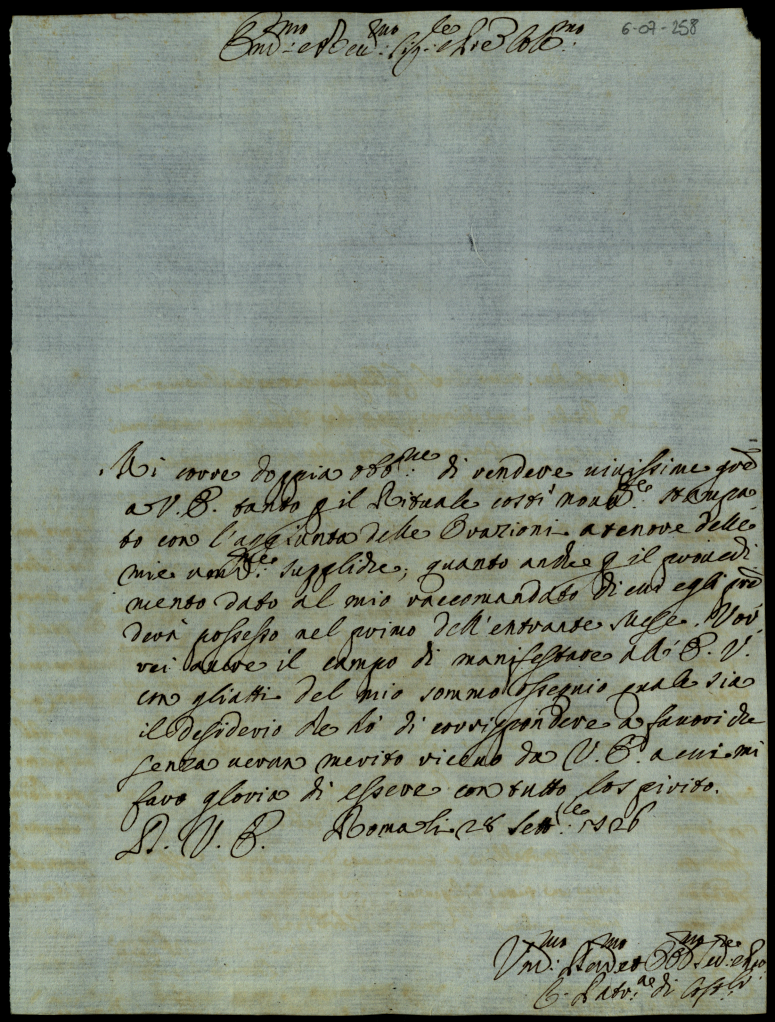 Em.mo e Re.mo Sig.re e P.ne Col.mo
6-07-258
Mi corre doppia obb.ne di rendere vivissime gre
a V. E. tanto p il Rituale costì nov.te stampa
to con l'aggiunta delle Orazioni a tenore delle
mie suppliche; quanto anche p il provedi
mento dato al mio raccomandato di cui egli pre
derà possesso nel primo dell'entrante Mese. Vor
rei avere il campo di manifestare all'E. V.
con gliatti del mio sommo ossequio quale sia
il desiderio che hò di corrispondere a favori che
senza verun merito ricevo da V. E. a cui mi
farò gloria di essere con tutto lo spirito.
D. V. E. Roma li 28 Sett.bre 1726
Um.mo Dev.mo et Obb.mo